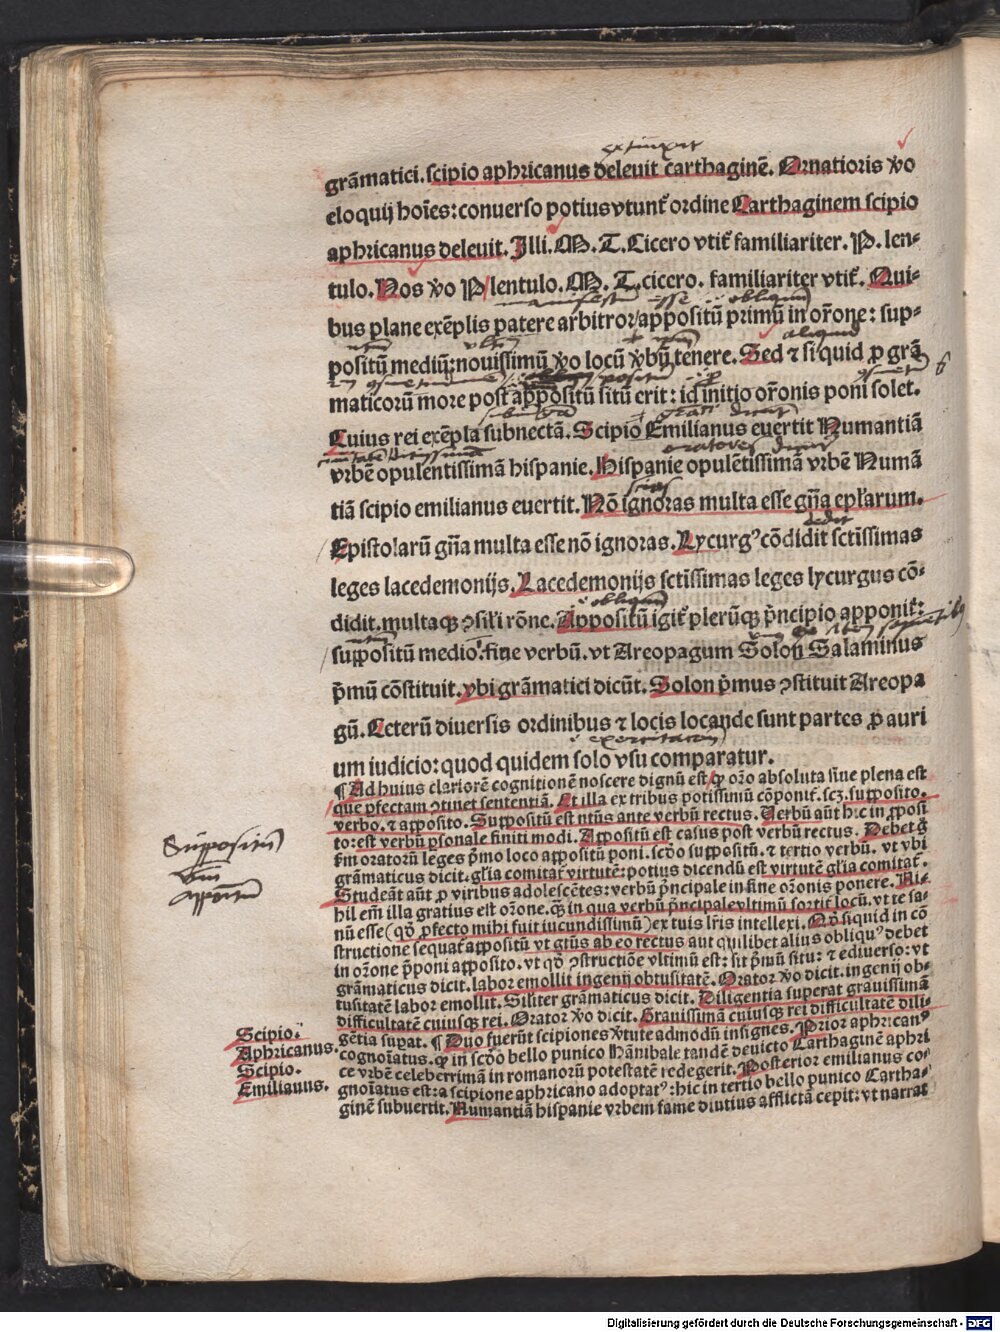 extinxit
grãmatici. scipio aphricanus deleuit carthaginẽ. Ornatioris v̾o
eloquij hoĩes: conuerso potius vtunt̃ ordine Carthaginem scipio
aphricanus deleuit. Illi. M. T. Cicero vtit̃ familiariter. P. len⸗
tulo. Nos v̾o P/lentulo. M. T. cicero. familiariter vtit̃. Qui⸗
manifestũ esse obliquũ
bus plane exẽplis patere arbitror/appositũ primũ in or̃one: sup⸗
positũ mediũ: nouissimũ v̾o locũ v̾bũ tenere. Sed ⁊ si quid ꝓ grã
maticorũ more post appositũ situ erit: id initio or̃onis poni solet.
Cuius rei exẽpla subnectã. Scipio Emilianus euertit Numantiã
oratores dicũt
vrbẽ opulentissimã hispanie. Hispanie opulẽtissimã vrbẽ Numã
scias
tiã scipio emilianus euertit. Nõ ignoras multa esse gñа ep̃larum.
dedit
Epistolarũ gñа multa esse nõ ignoras. Lycurgꝰ cõdidit sctĩssimas
leges lacedemonijs. Lacedemonijs sctĩssimas leges lycurgus cõ⸗
obliquũ
didit. multaqꝫ ↄsil̃i rõne. Appositũ igit̃ plerũqꝫ p̃ncipio apponit̃:
suppositũ medio: fine verbũ. vt Areopagum Solon Salaminus
p̃mũ cõstituit. vbi grãmatici dicũt. Solon p̃mus ↄstituit Areopa
gũ. Ceterũ diuersis ordinibus ⁊ locis locande sunt partes ꝓ auri
exercitatõe
um iudicio: quod quidem solo vsu comparatur.
¶ Ad huius clariorẽ cognitionẽ noscere dignũ est/ꝙ or̃o absoluta siue plena est
que ꝑfectam ↄtinet sententiã. Et illa ex tribus potissimũ cõponit̃. scꝫ. supposito.
verbo. ⁊ apposito. Suppositũ est ntũs ante verbũ rectus. Verbũ aũt hic in ꝓposi
to: est verbũ ꝑsonale finiti modi. Appositũ est casus post verbũ rectus. Debet g̃
ẽm oratorũ leges p̃mo loco appositũ poni. scďo suppositũ. ⁊ tertio verbũ. vt vbi
grãmaticus dicit. gl̃ia comitat̃ virtutẽ: potius dicendũ est virtutẽ gl̃ia comitat̃.
Studeãt aũt ꝓ viribus adolescẽtes: verbũ p̃ncipale in fine or̃onis ponere. Ni⸗
hil em̃ illa gratius est or̃one. q̃ꝫ in qua verbũ p̃ncipale vltimũ sortit̃ locũ. vt te sa⸗
nũ esse (qd̾ ꝓfecto mihi fuit iucundissimũ) ex tuis lr̃is intellexi. Qd̾ si quid in cõ
structione sequat̃ appositũ vt gtũs ab eo rectus aut quilibet alius obliquꝰ debet
in or̃one p̃poni apposito. vt qd̾ ↄstructiõe vltimũ est: sit p̃mũ situ: ⁊ ediuerso: vt
grãmaticus dicit. labor emollit ingenij obtusitatẽ. Orator v̾o dicit. ingenij ob⸗
tusitatẽ labor emollit. Sil̃iter grãmaticus dicit. Diligentia superat grauissimã
difficultatẽ cuiusqꝫ rei. Orator v̾o dicit. Grauissimã cuiusqꝫ rei difficultatẽ dili⸗
gẽtia supat. ¶ Duo fuerũt scipiones v̾tute admodũ insignes. Prior aphricanꝰ
cognoĩatus. ꝙ in scďo bello punico Hãnibale tandẽ deuicto Carthaginẽ aphri
ce vrbẽ celeberrimã in romanorũ potestatẽ redegerit. Posterior emilianus co⸗
gnoĩatus est: a scipione aphricano adoptatꝰ: hic in tertio bello punico Cartha⸗
ginẽ subuertit. Numantiã hispanie vrbem fame diutius afflictã cepit: vt narrat
Suppositũ
v̾bũ
appositũ
Scipio.
Aphricanus.
Scipio.
Emilianus.
Digitalisierung gefördert durch die Deutsche Forschungsgemeinschaft - DFG